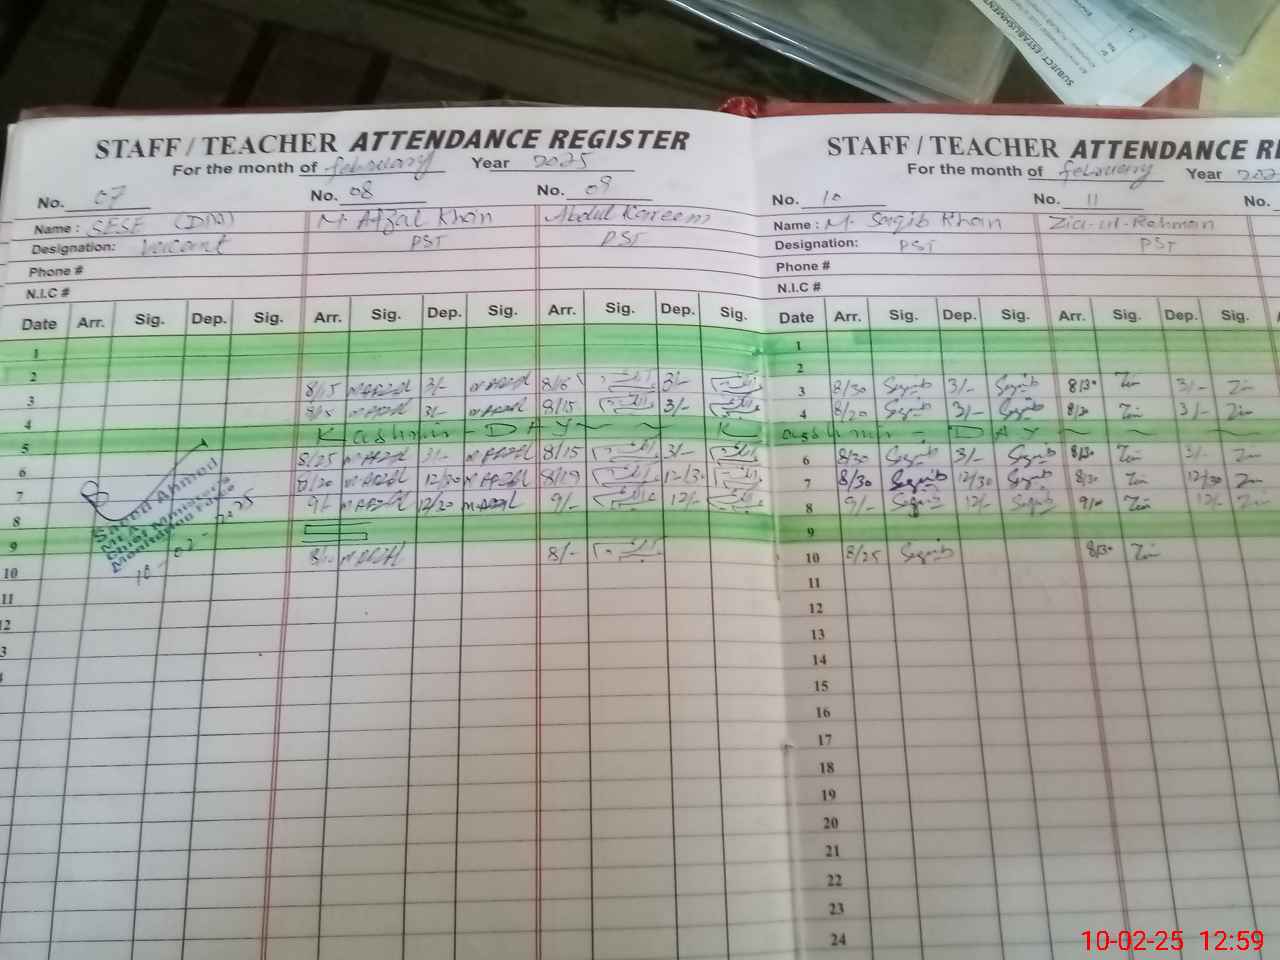 SUBJECT: ESTABLISHMENT
STAFF / TEACHER ATTENDANCE REGISTER
For the month of february Year 2025
No. 07 No. 08 No. 09
Name: SESE (DM) M. Afzal Khan Abdul Kareem
Designation: Vacant PST PST
Phone #
N.I.C #
Date Arr. Sig. Dep. Sig. Arr. Sig. Dep. Sig. Arr. Sig. Dep. Sig.
1
2
3 8/15 m Afzal 3/- m Afzal 8/15 3/-
4 8/15 m Afzal 3/- m Afzal 8/15 3/-
5 Kashmir - DAY ~ ~ K
6 8/25 m Afzal 3/- m Afzal 8/15 3/-
7 8/20 m Afzal 12/30 m Afzal 8/19 12/30
8 9/- m Afzal 12/20 m Afzal 9/- 12/-
9
10 m Afzal 8/-
11
12
Saeed Ahmed
MEA
Chief Minister's
Monitoring Force
10-02-2025
STAFF / TEACHER ATTENDANCE RE
For the month of february Year 202
No. 10 No. 11 No.
Name: M. Saqib Khan Zia-ur-Rahman
Designation: PST PST
Phone #
N.I.C #
Date Arr. Sig. Dep. Sig. Arr. Sig. Dep. Sig.
1
2
3 8/30 Saqib 3/- Saqib 8/30 Zia 3/- Zia
4 8/20 Saqib 3/- Saqib 8/20 Zia 3/- Zia
5 ashmir - DAY ~ ~ ~ ~
6 8/30 Saqib 3/- Saqib 8/30 Zia 3/- Zia
7 8/30 Saqib 12/30 Saqib 8/30 Zia 12/30 Zia
8 9/- Saqib 12/- Saqib 9/0 Zia 12/- Zia
9
10 8/25 Saqib 8/30 Zia
11
12
13
14
15
16
17
18
19
20
21
22
23
24
10-02-25 12:59